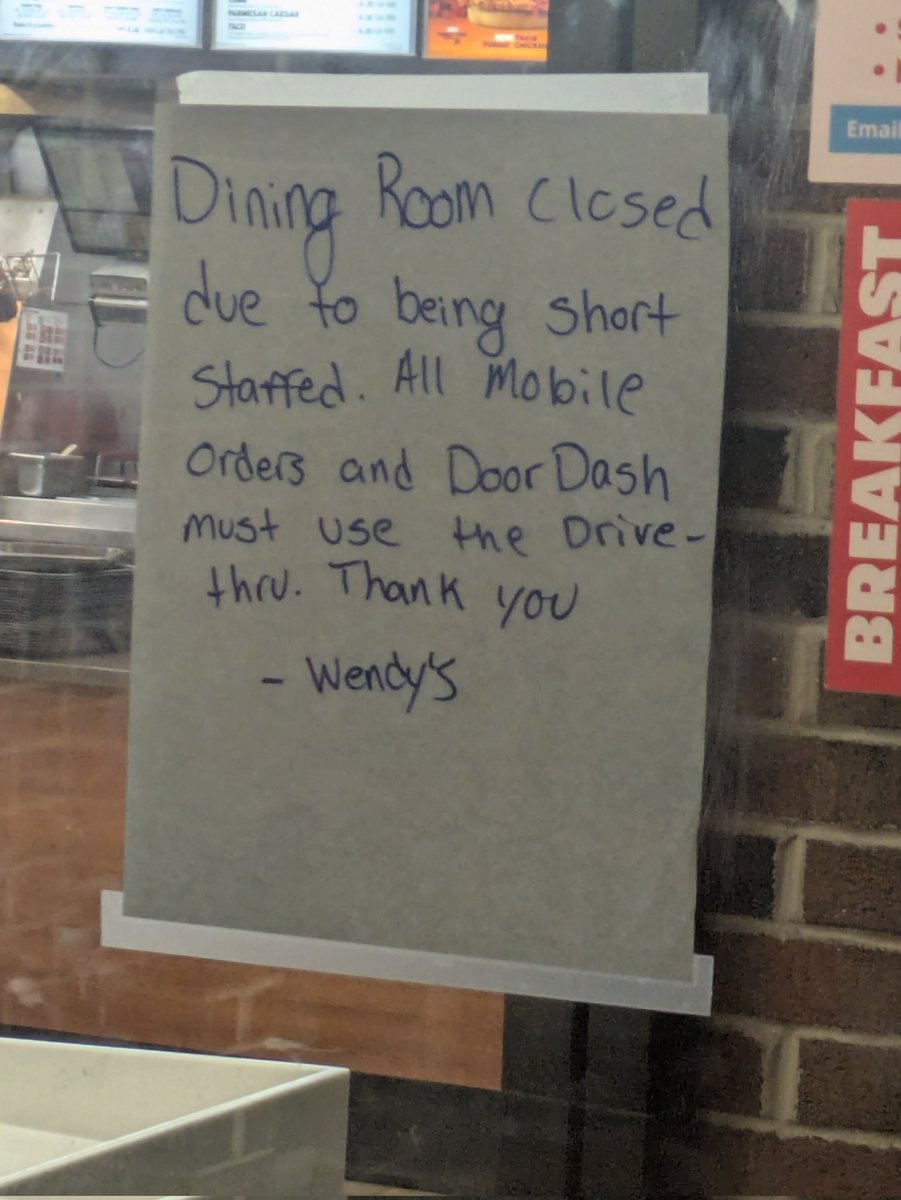 PARMESAN CAESAR
TACO
Dining Room Closed
due to being short
Staffed. All Mobile
Orders and DoorDash
must use the Drive-
thru. Thank you
- Wendy's
Email
BREAKFAST